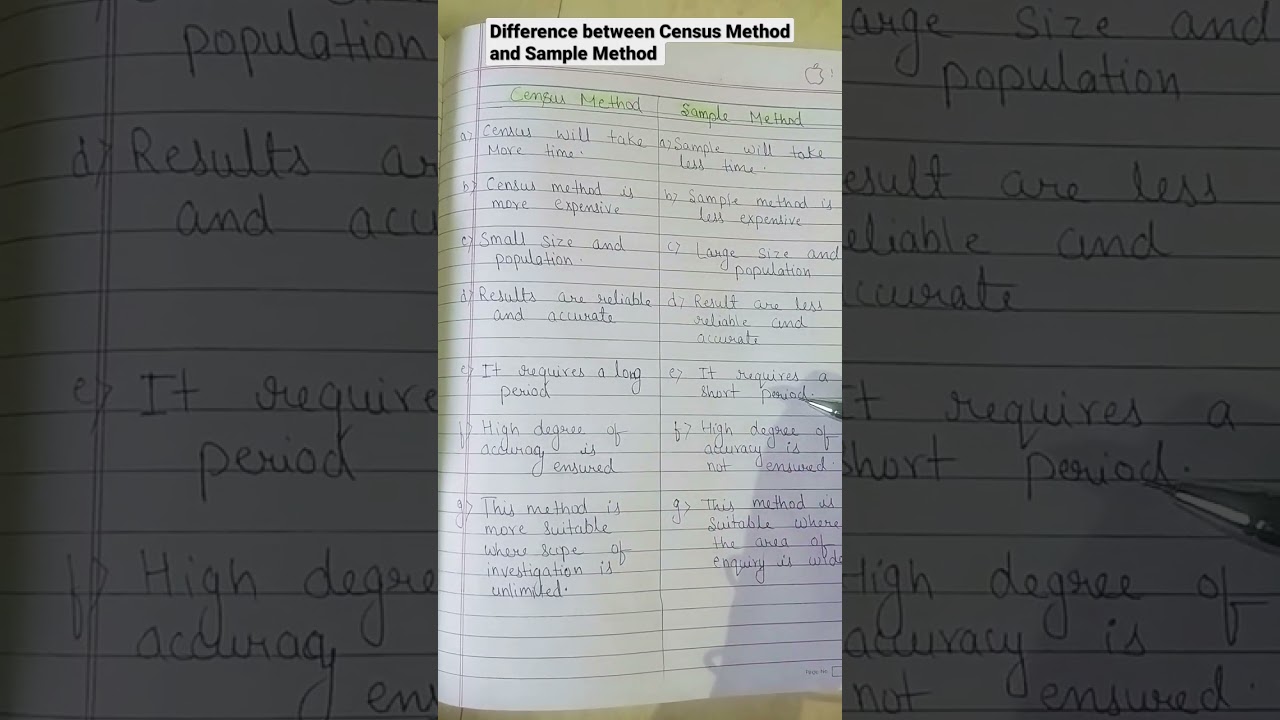 Difference between Census Method
and Sample Method
Census Method
a) Census will take
More time.
b) Census method is
more expensive
c) Small size and
population.
d) Results are reliable
and accurate
e) It requires a long
period
f) High degree of
accuracy is
ensured
g) This method is
more suitable
where scope of
investigation is
unlimited.
Sample Method
a) Sample will take
less time.
b) Sample method is
less expensive
c) Large size and
population
d) Result are less
reliable and
accurate
e) It requires a
short period.
f) High degree of
accuracy is
not ensured.
g) This method is
Suitable where
the area of
enquiry is wide
Page No
population
d) Results ar
and accu
e) It require
period
f) High degree
accuracy
en
arge size and
population
esult are less
eliable and
ccurate
It requires a
short period.
High degree of
accuracy is
not ensured.